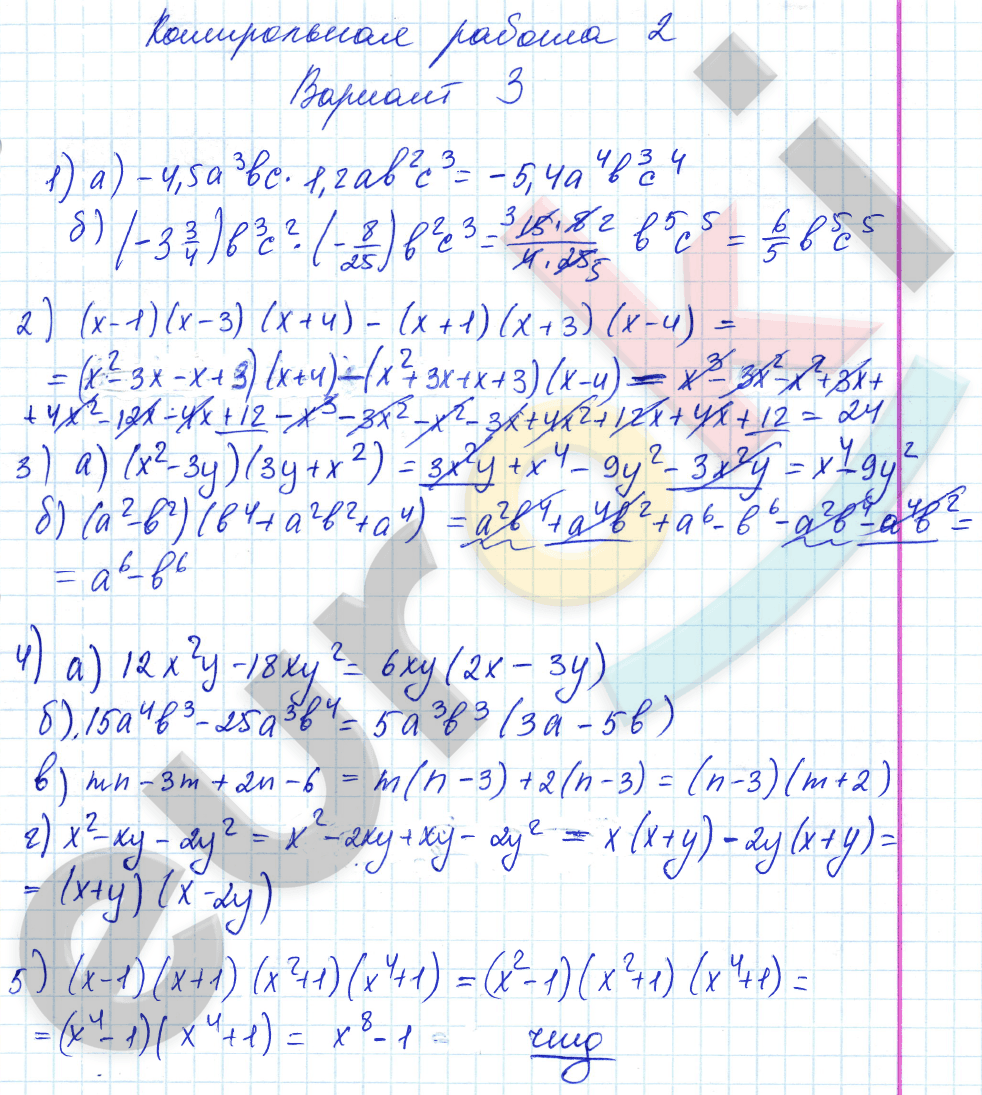 Контрольная работа 2
Вариант 3
1) а) -4,5a³bc · 1,2ab²c³ = -5,4a⁴b³c⁴
б) (-3 3/4)b³c² · (-8/25)b²c³ = 3 15·8 2 / 4·25 5 b⁵c⁵ = 6/5 b⁵c⁵
2) (x-1)(x-3)(x+4) - (x+1)(x+3)(x-4) =
= (x²-3x-x+3)(x+4) - (x²+3x+x+3)(x-4) = x³-3x²-x²+3x+
+4x²-12x-4x+12-x³-3x²-x²-3x+4x²+12x+4x+12 = 24
3) а) (x²-3y)(3y+x²) = 3x²y+x⁴-9y²-3x²y = x⁴-9y²
б) (a²-b²)(b⁴+a²b²+a⁴) = a²b⁴+a⁴b²+a⁶-b⁶-a²b⁴-a⁴b² =
= a⁶-b⁶
4) а) 12x²y-18xy² = 6xy(2x-3y)
б) 15a⁴b³-25a³b⁴ = 5a³b³(3a-5b)
в) mn-3m+2n-6 = m(n-3)+2(n-3) = (n-3)(m+2)
г) x²-xy-2y² = x²-2xy+xy-2y² = x(x+y)-2y(x+y) =
= (x+y)(x-2y)
5) (x-1)(x+1)(x²+1)(x⁴+1) = (x²-1)(x²+1)(x⁴+1) =
= (x⁴-1)(x⁴+1) = x⁸-1 чтд
euroki